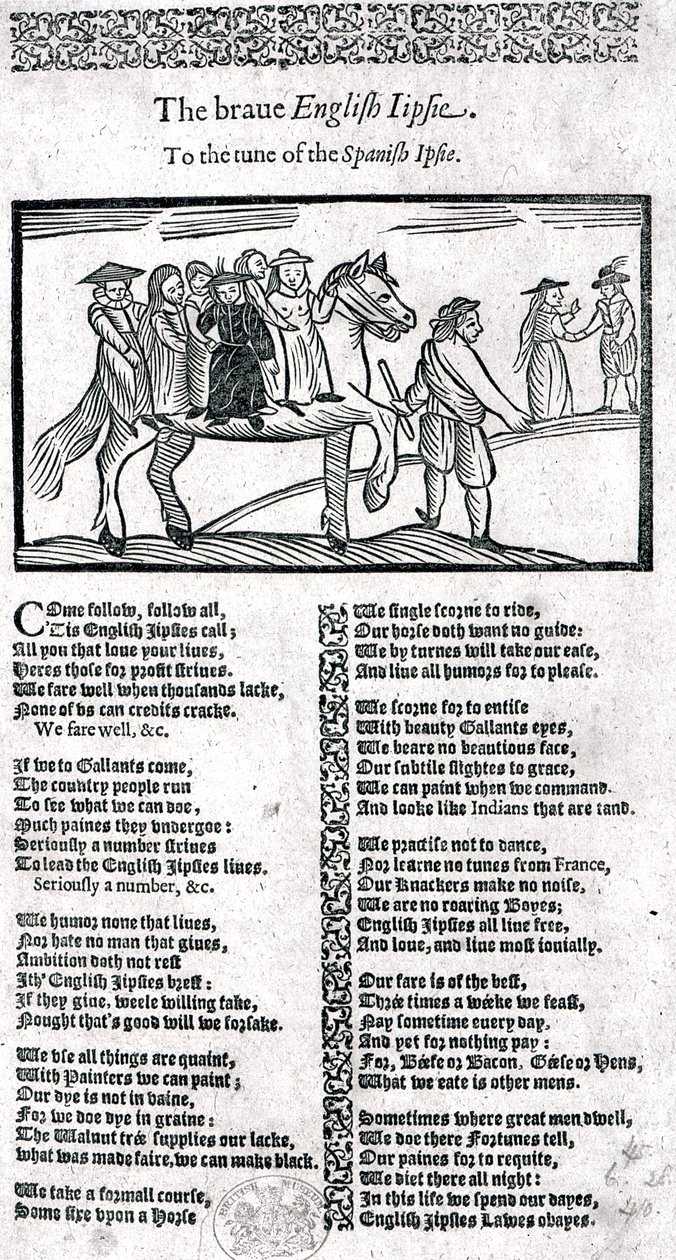 The braue Engliſh Iipſie.
To the tune of the Spaniſh Ipſie.
COme follow, follow all,
'Tis Engliſh Jipſies call;
All you that loue your liues,
Heres thoſe for profit ſtriues.
We fare well when thouſands lacke,
None of vs can credits cracke.
We fare well, &c.
If we to Gallants come,
The country people run
To ſee what we can doe,
Much paines they vndergoe:
Seriouſly a number ſtriues
To lead the Engliſh Jipſies liues.
Seriouſly a number, &c.
We humor none that liues,
Nor hate no man that giues,
Ambition doth not reſt
Ith' Engliſh Jipſies breſt:
If they giue, weele willing take,
Nought that's good will we forſake.
We vſe all things are quaint,
With Painters we can paint;
Our dye is not in vaine,
For we doe dye in graine:
The Walnut trée ſupplies our lacke,
what was made faire, we can make black.
We take a formall courſe,
Some ſixe vpon a Horſe
We ſingle ſcorne to ride,
Our horſe doth want no guide:
We by turnes will take our eaſe,
And liue all humors for to pleaſe.
We ſcorne for to entiſe
With beauty Gallants eyes,
We beare no beautious face,
Our ſubtile ſlightes to grace,
We can paint when we command.
And looke like Indians that are tand.
We practiſe not to dance,
Nor learne no tunes from France,
Our Knackers make no noiſe,
We are no roaring Boyes;
Engliſh Jipſies all liue frée,
And loue, and liue moſt iouially.
Our fare is of the beſt,
Thrée times a wéeke we feaſt,
Nay ſometime euery day,
And yet for nothing pay:
For, Béefe or Bacon, Géeſe or Hens,
What we eate is other mens.
Sometimes where great men dwell,
We doe there Fortunes tell,
Our paines for to requite,
We diet there all night:
In this life we ſpend our dayes,
Engliſh Jipſies Lawes obayes.
BRITISH MUSEUM